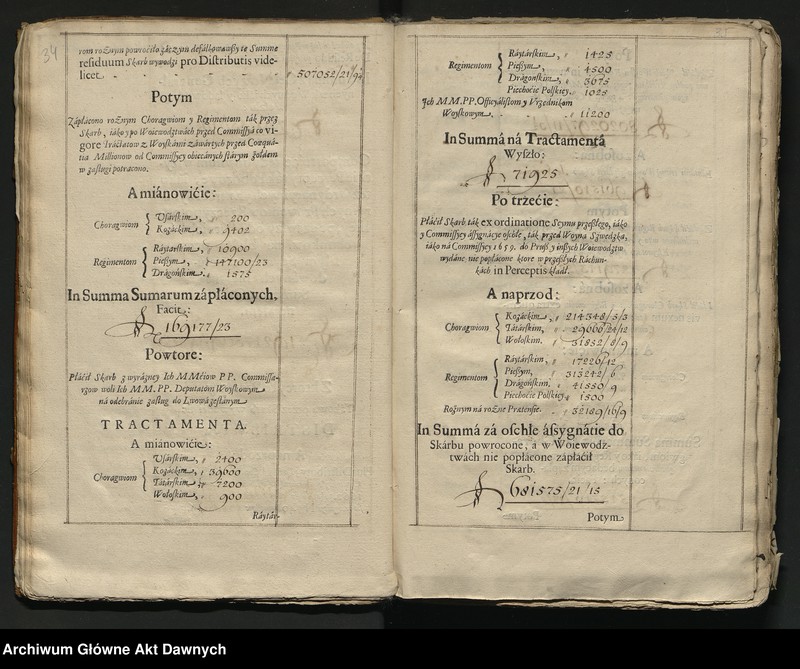 34
rom rożnym powroćiło zaczym defalkowawszy tę Summę
residuum Skarb wywodzi pro Distributis vide-
licet. 507052/21/9
Potym
Zápłácono rożnym Choragwiom y Regimentom ták przez
Skarb, iáko y po Woiewodztwách przed Commissyą co vi-
gore Tráctatow z Woyskámi záwártych przed Czoquá-
tia Millionow od Commissycy obiecánych stárym żołdem
w zasługi potrącono.
A miánowićie:
Choragwiom { Vsárskim, 200
Kozáckim, 9402
Regimentom { Ráytárskim, 10900
Pieszym, 147100/23
Drágońskim. 1575
In Summa Sumarum zápłáconych,
Facit:
169177/23
Powtore:
Płáćił Skarb z wyráźney Ich MMćiow PP. Commissa-
rzow woli Ich MM. PP. Deputatom Woyskowym
ná odebránie zasług do Lwowá zesłánym
TRACTAMENTA.
A mianowićie:
Choragwiom { Vsárskim, 2400
Kozáckim, 39600
Tátárskim, 7200
Wołoskim, 900
Ráytár-
Regimentom { Ráytárskim, 1425
Pieszym, 4500
Drágońskim, 3675
Piechoćie Polskiey, 1025
Ich MM. PP. Officyálistom y Vrzędnikom
Woyskowym, 11200
In Summá ná Tractamentá
Wyszło:
71925
Po trzećie:
Płáćił Skarb ták ex ordinatione Seymu przeszłego, iáko
y Commissycy ássygnácye oschłe, ták przed Woyną Szwedzką,
iáko ná Commissycy 1659. do Pruss y inszych Woiewodztw
wydáne nie popłácone ktore w przeszłych Ráchun-
kách in Perceptis kładł.
A naprzod:
Choragwiom { Kozáckim, 214348/3/3
Tátárskim, 29666/24/12
Wołoskim. 31852/8/9
Regimentom { Ráytárskim, 17226/12
Pieszym, 313242/6
Drágońskim, 41550/9
Piechoćie Polskiey 1500
Rożnym ná rożne Prætensie. 32189/16/9
In Summá zá oschłe ássygnátie do
Skárbu powrocone, á w Woiewodz-
twách nie popłácone zápłáćił
Skarb.
681575/21/15
Potym
Archiwum Główne Akt Dawnych